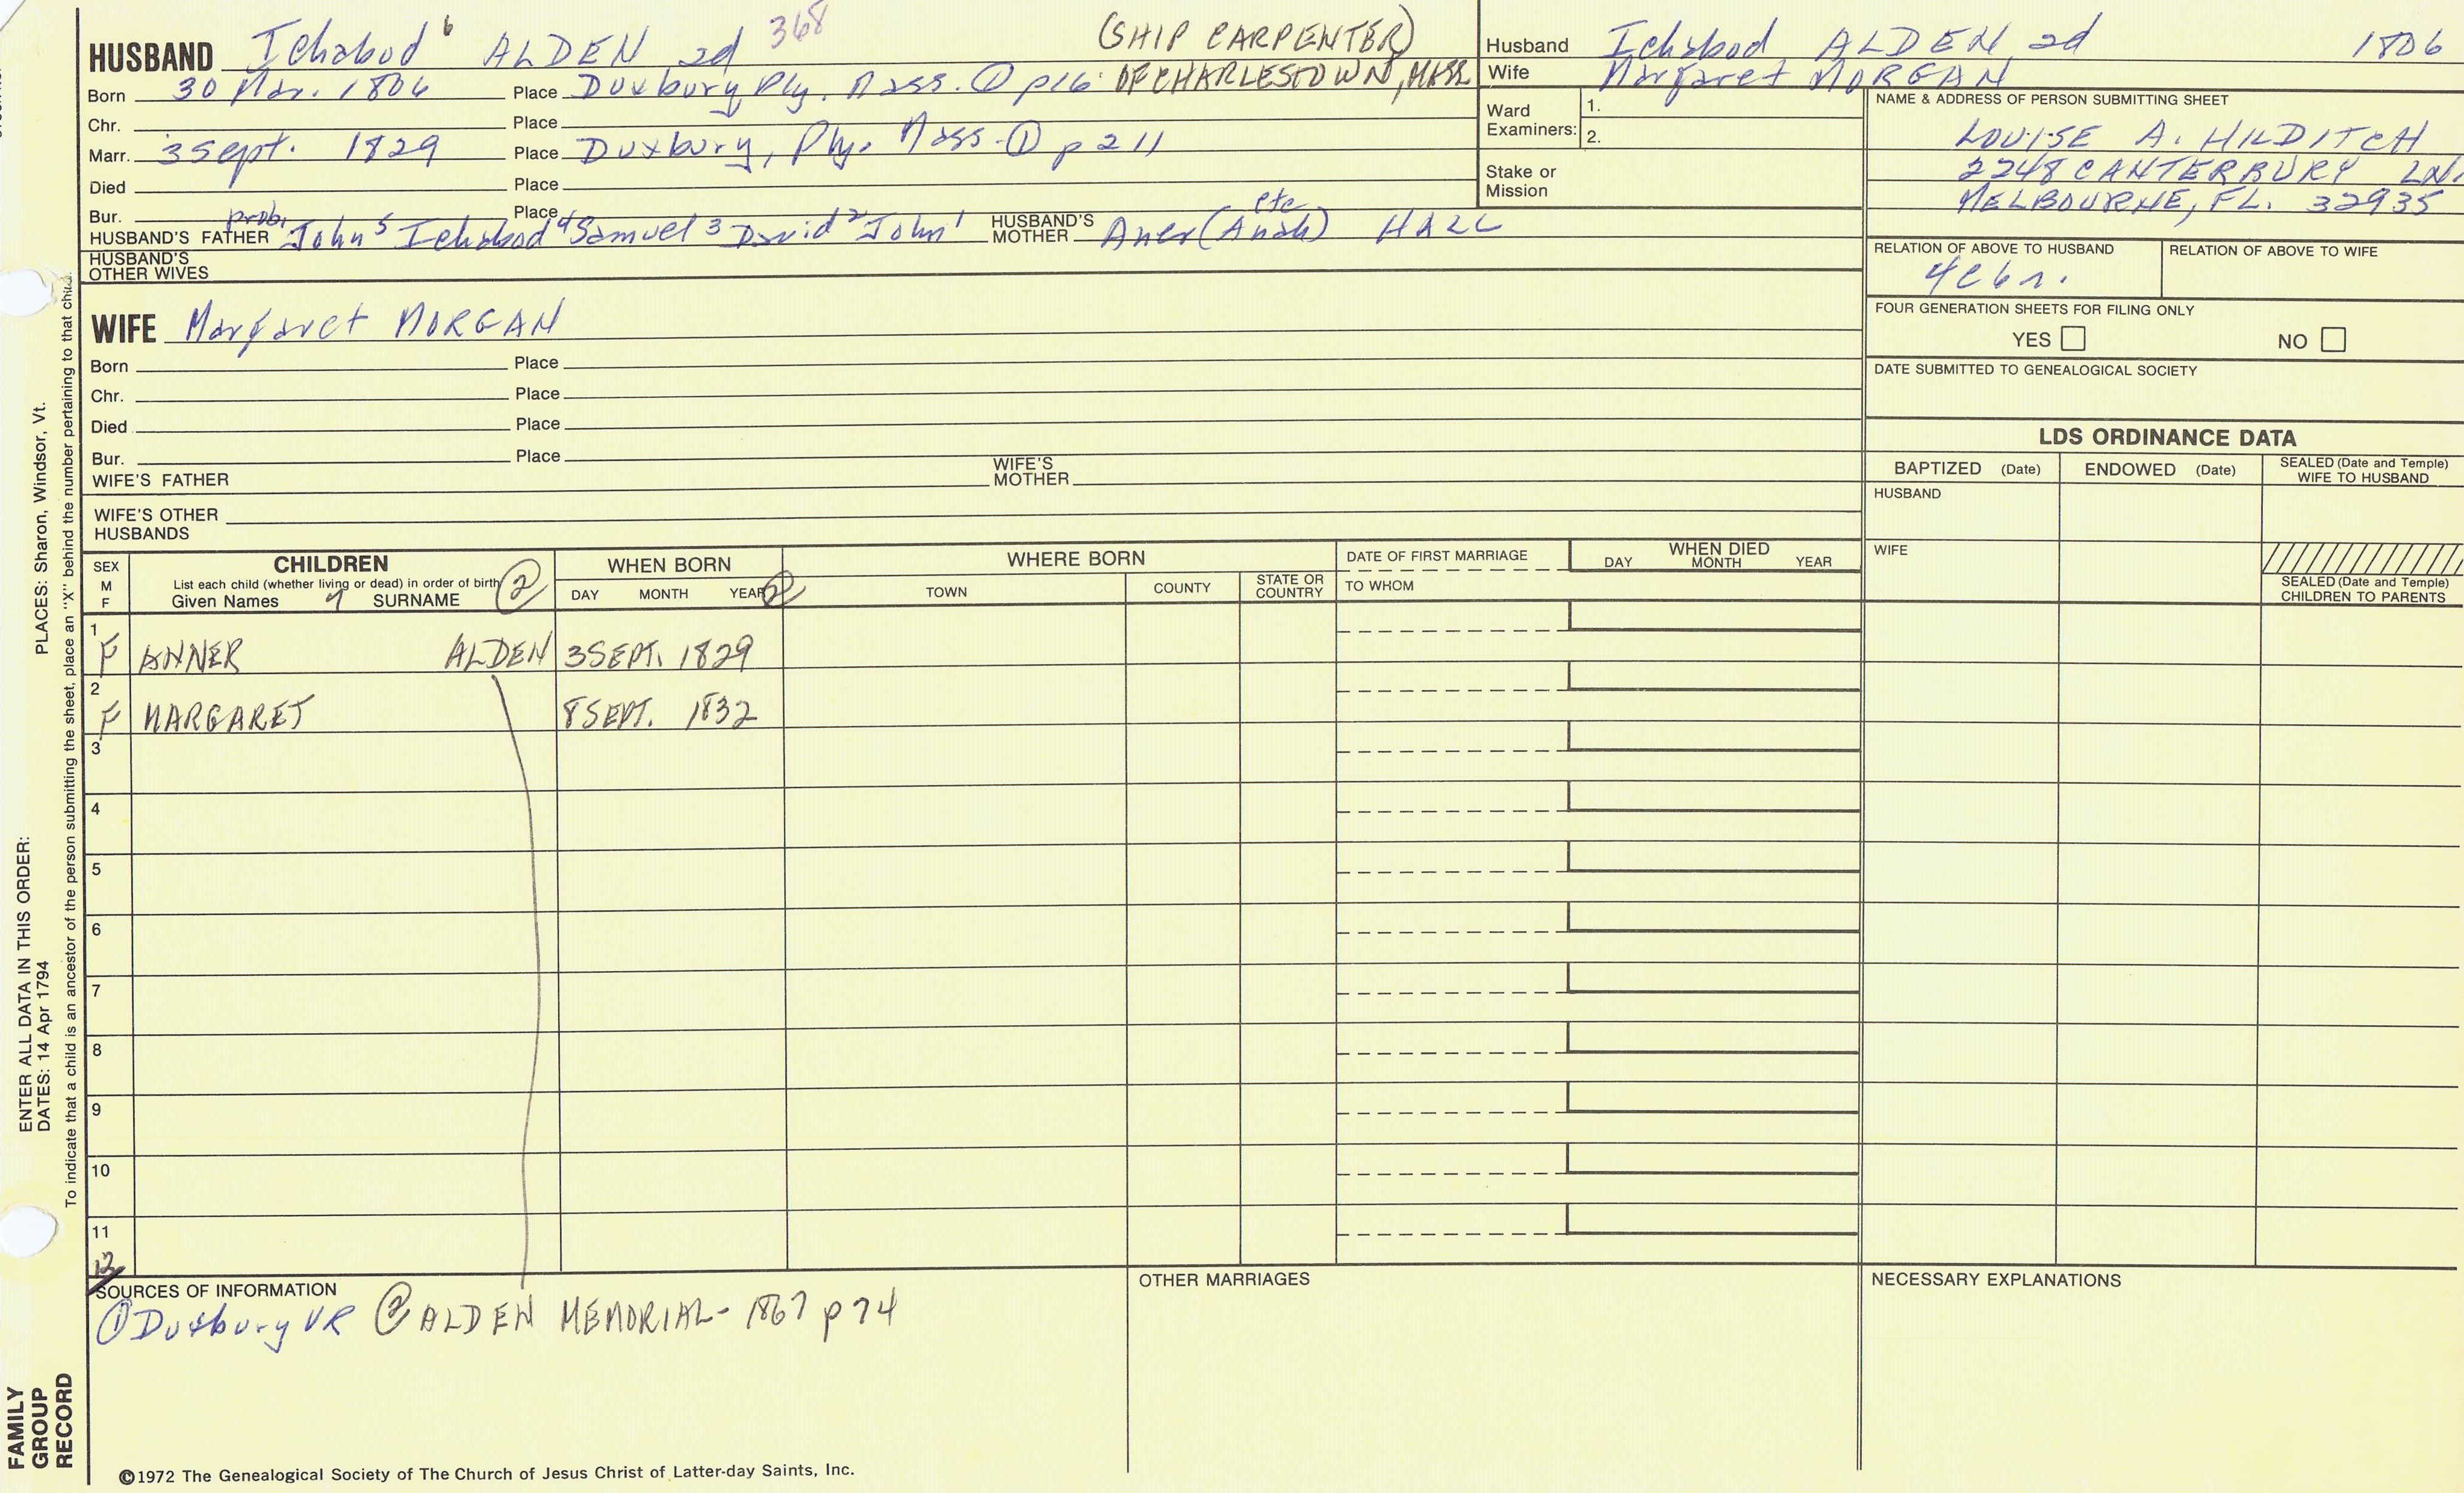 HUSBAND Ichabod 6 ALDEN 2d 368 (SHIP CARPENTER)
Born 30 Mar. 1806 Place Duxbury Ply. Mass. ① p16 OF CHARLESTOWN, MASS
Chr. Place
Marr. 3 Sept. 1829 Place Duxbury, Ply. Mass. ① p 211
Died Place
Bur. Place
HUSBAND'S FATHER prob. John 5 Ichabod 4 Samuel 3 David 2 John 1 HUSBAND'S MOTHER Aner (Anah) etc HALL
HUSBAND'S
OTHER WIVES
Husband Ichabod ALDEN 2d 1806
Wife Margaret MORGAN
Ward
Examiners: 1.
2.
Stake or
Mission
NAME & ADDRESS OF PERSON SUBMITTING SHEET
LOUISE A. HILDITCH
2248 CANTERBURY LN.
MELBOURNE, FL. 32935
RELATION OF ABOVE TO HUSBAND RELATION OF ABOVE TO WIFE
4c6r.
FOUR GENERATION SHEETS FOR FILING ONLY
YES NO
DATE SUBMITTED TO GENEALOGICAL SOCIETY
WIFE Margaret MORGAN
Born Place
Chr. Place
Died Place
Bur. Place
WIFE'S FATHER WIFE'S MOTHER
WIFE'S OTHER
HUSBANDS
LDS ORDINANCE DATA
BAPTIZED (Date) ENDOWED (Date) SEALED (Date and Temple)
WIFE TO HUSBAND
HUSBAND
WIFE
SEALED (Date and Temple)
CHILDREN TO PARENTS
SEX
M
F
CHILDREN
List each child (whether living or dead) in order of birth ②
Given Names 7 SURNAME
WHEN BORN
DAY MONTH YEAR ②
WHERE BORN
TOWN COUNTY STATE OR
COUNTRY
DATE OF FIRST MARRIAGE
TO WHOM
WHEN DIED
DAY MONTH YEAR
1
F ANNER ALDEN 3 SEPT. 1829
2
F MARGARET 8 SEPT. 1832
3
4
5
6
7
8
9
10
11
12
SOURCES OF INFORMATION
① Duxbury VR ② ALDEN MEMORIAL - 1867 p 74
OTHER MARRIAGES
NECESSARY EXPLANATIONS
©1972 The Genealogical Society of The Church of Jesus Christ of Latter-day Saints, Inc.
FAMILY
GROUP
RECORD
ENTER ALL DATA IN THIS ORDER:
DATES: 14 Apr 1794 PLACES: Sharon, Windsor, Vt.
To indicate that a child is an ancestor of the person submitting the sheet, place an "X" behind the number pertaining to that child.